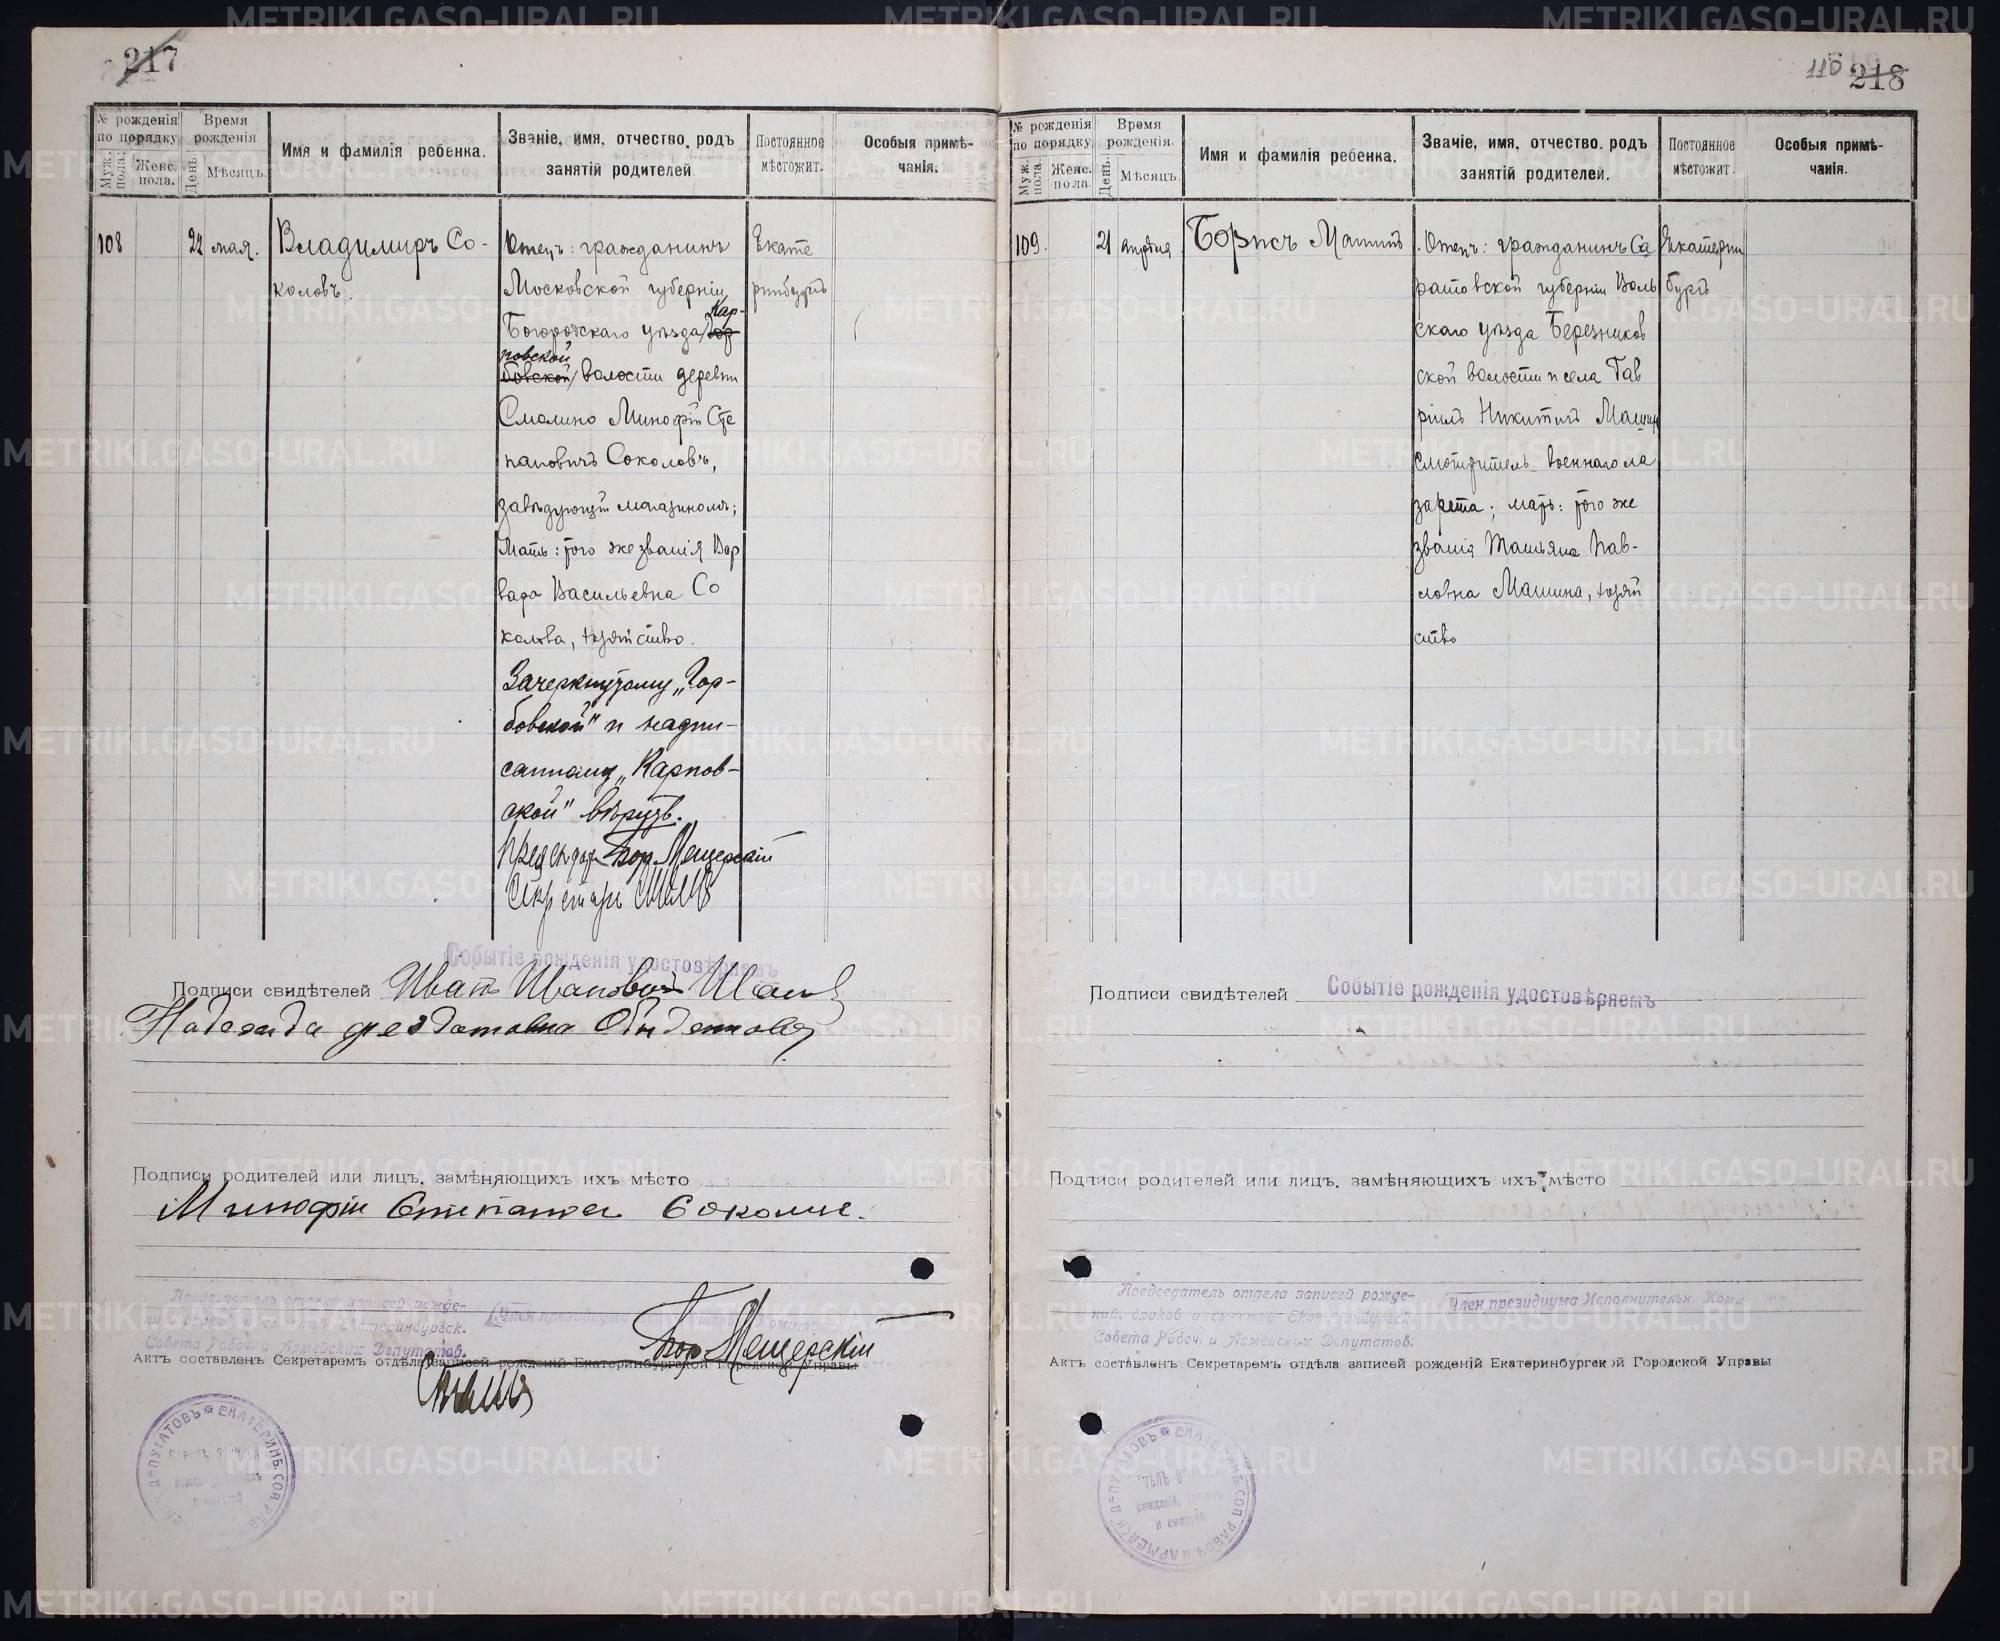 217
№ рожденія по порядку
Муж. пола.
Женс. пола.
Время рожденія
День.
Мѣсяцъ.
Имя и фамилія ребенка.
Званіе, имя, отчество, родъ занятій родителей.
Постоянное мѣстожит.
Особыя примѣчанія.
108
22 мая.
Владимиръ Со-
коловъ.
Отецъ: гражданинъ
Московской губерніи
Богородскаго уѣзда Гор Кар-
бовской повской волости деревни
Смолино Минофій Сте
пановичъ Соколовъ,
завѣдующій магазиномъ;
Мать: того же званія Вар
вара Васильевна Со
колова, хозяйство.
Зачеркнутому „Гор-
бовской" и надпи-
санному „Карпов-
ской" вѣрить.
Предсѣдат. Бор. Мещерскій
Секретарь
Екате
ринбургъ
Событіе рожденія удостовѣряемъ
Подписи свидѣтелей Иван Иванович
Надежда
Подписи родителей или лицъ, замѣняющихъ ихъ мѣсто
Минофій Степанов Соколов.
Предсѣдатель отдела записей рожде-
ній, браков и смертей Екатеринбургск.
Совета Рабоч. и Армейских Депутатов.
Член президиума
Бор. Мещерскій
Актъ составленъ Секретаремъ отдѣла записей рожденій Екатеринбургской Городской Управы
110 218
№ рожденія по порядку
Муж. пола.
Женс. пола
Время рожденія.
День.
Мѣсяцъ.
Имя и фамилія ребенка.
Званіе, имя, отчество, родъ занятій родителей.
Постоянное мѣстожит.
Особыя примѣчанія.
109.
21 апрѣля
Борисъ Машинъ
Отецъ: гражданинъ Са
ратовской губерніи Воль
скаго уѣзда Березников
ской волости и села Гав
ріилъ Никитичъ Машин
смотритель военнаго ла
зарета; мать: того же
званія Татьяна Пав-
ловна Машина, хозяй
ство
Екатерин
бургъ
Подписи свидѣтелей Событіе рожденія удостовѣряемъ
Подписи родителей или лицъ, замѣняющихъ ихъ мѣсто
Председатель отдела записей рожде-
ний, браков и смертей Екатеринбургск.
Совета Рабоч. и Армейских Депутатов.
Член президиума Исполнительн. Коми
Актъ составленъ Секретаремъ отдѣла записей рожденій Екатеринбургской Городской Управы
METRIKI.GASO-URAL.RU